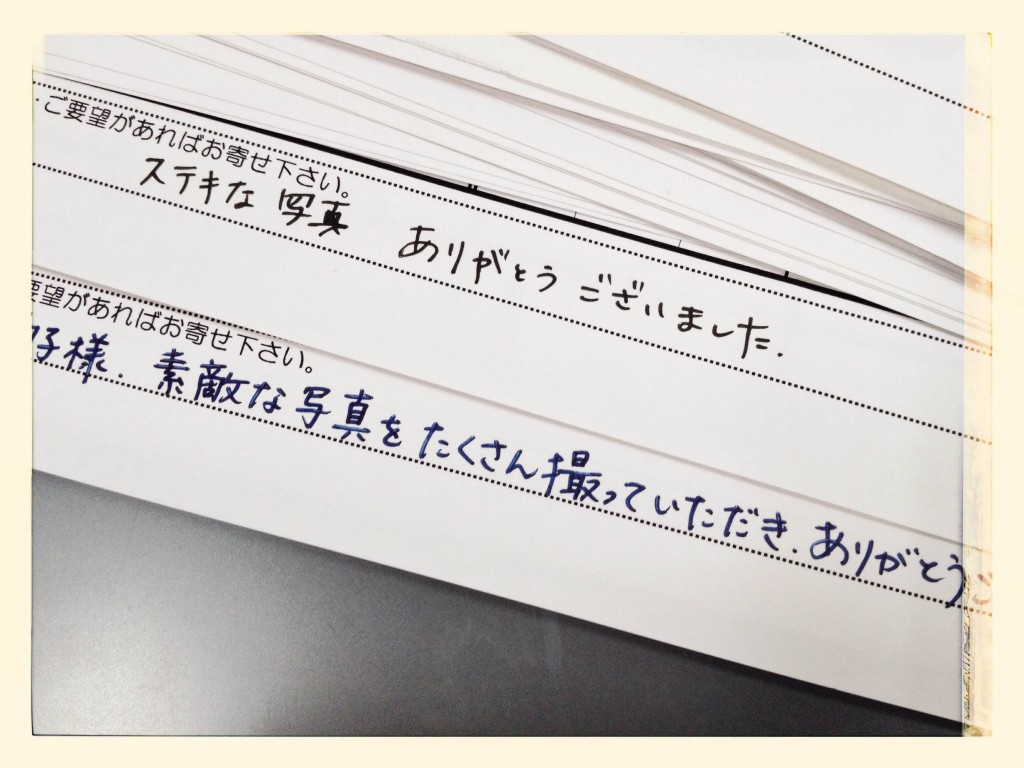 ・ご要望があればお寄せ下さい。
ステキな 写真 ありがとう ございました.
要望があればお寄せ下さい。
子様. 素敵な写真をたくさん撮っていただき. ありがとうご